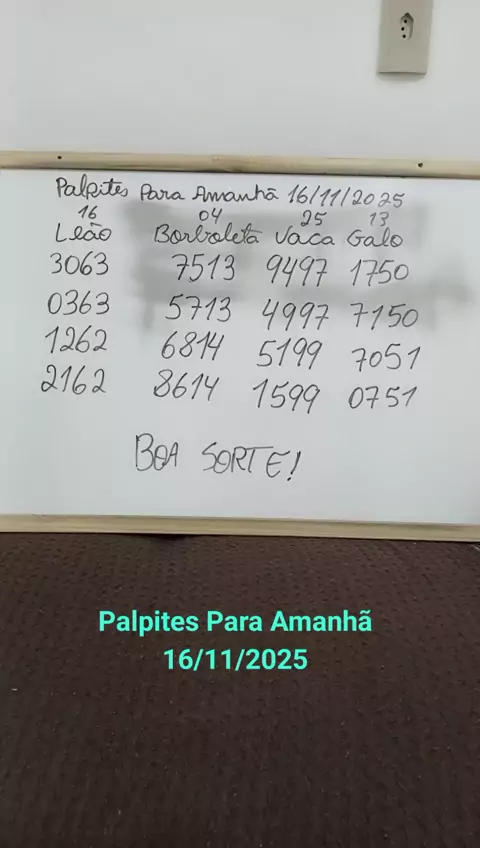 Palpites Para Amanhã 16/11/2025
16 04 25 13
Leão Borboleta Vaca Galo
3063 7513 9497 1750
0363 5713 4997 7150
1262 6814 5199 7051
2162 8614 1599 0751
BOA SORTE!
Palpites Para Amanhã
16/11/2025